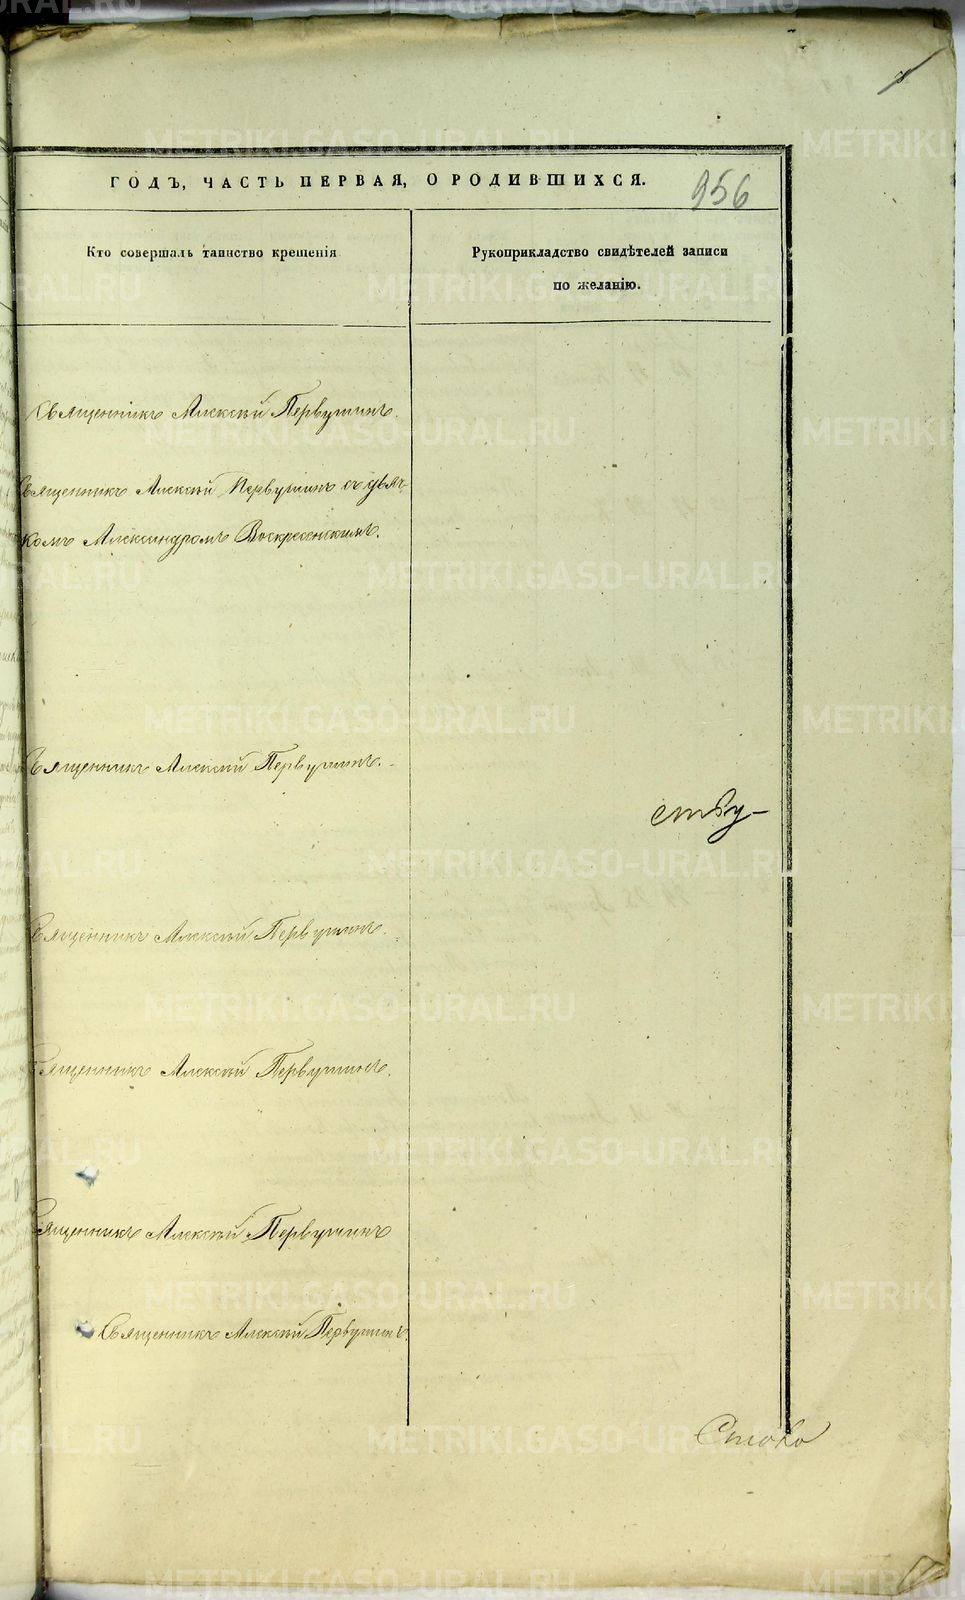 ГОДЪ, ЧАСТЬ ПЕРВАЯ, О РОДИВШИХСЯ.
956
Кто совершалъ таинство крещенія
Рукоприкладство свидѣтелей записи
по желанію.
Священникъ Алексѣй Первушинъ.
Священникъ Алексѣй Первушинъ съ дья-
комъ Александромъ Воскресенскимъ.
Священникъ Алексѣй Первушинъ.
ству-
Священникъ Алексѣй Первушинъ.
Священникъ Алексѣй Первушинъ.
Священникъ Алексѣй Первушинъ
Священникъ Алексѣй Первушинъ.
METRIKI.GASO-URAL.RU